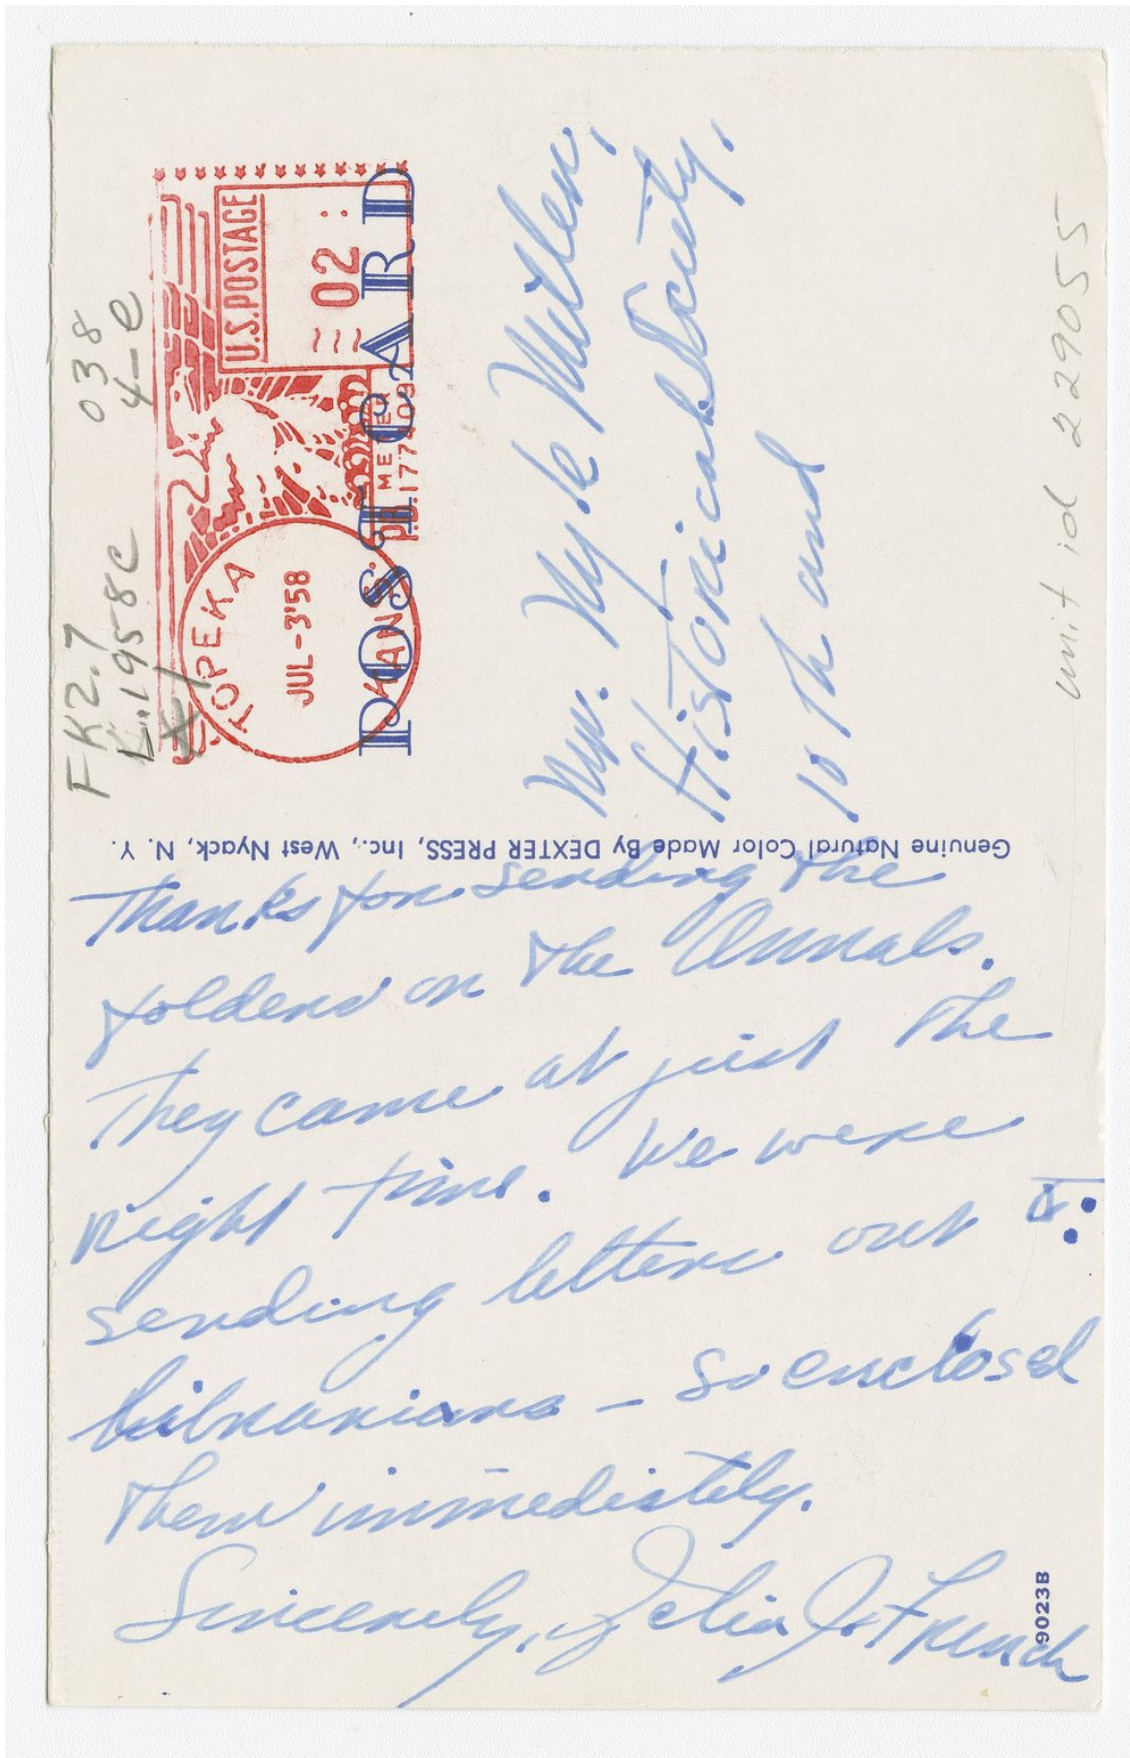 FK2.7 038
L.1958c 4-e
*1
TOPEKA
JUL-3'58
KANS
U.S.POSTAGE
02
METER
P.B.177403
POST CARD
Mr. Nyle Miller,
Historical Society,
10 Th and
unit id 229055
Genuine Natural Color Made By DEXTER PRESS, Inc., West Nyack, N. Y.
Thanks for sending the
folders on the Annals.
They came at just the
right time. We were
sending letters out to
librarians - so enclosed
them immediately.
Sincerely, Zelia J. French
90238